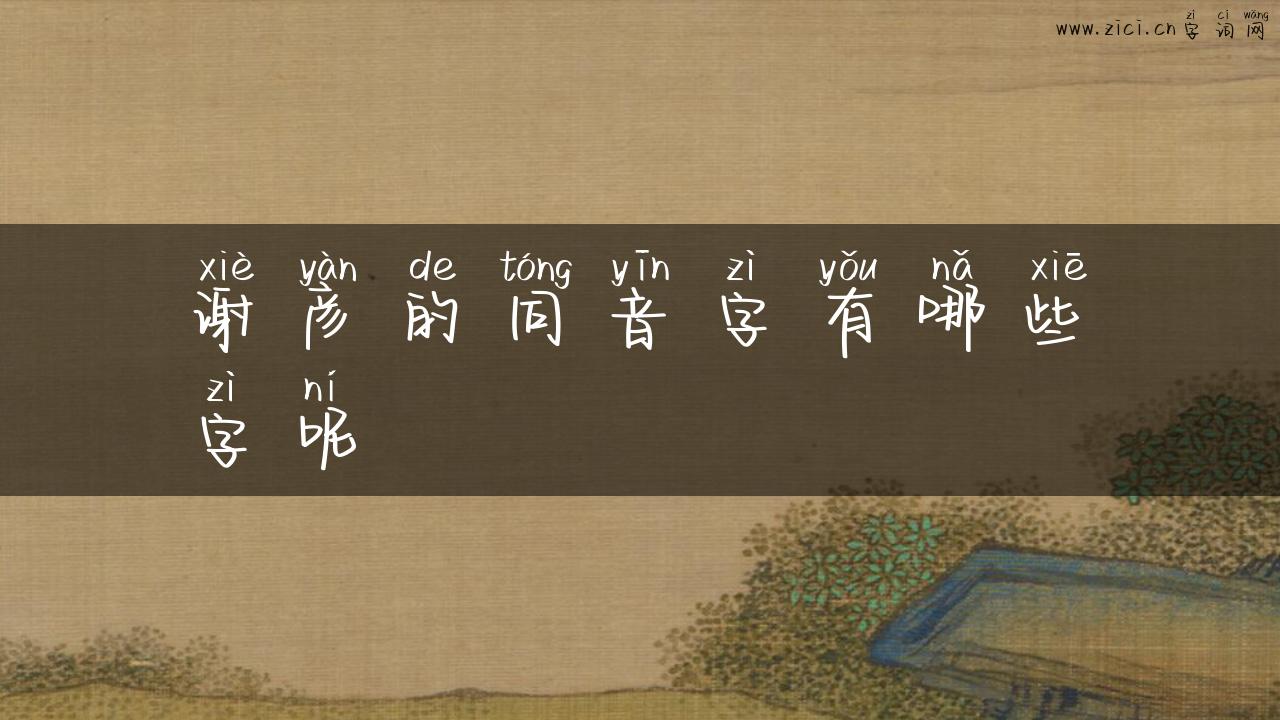 zì cí wǎng
www.zici.cn 字词网
xiè yàn de tóng yīn zì yǒu nǎ xiē
谢彦的同音字有哪些
zì ní
字呢